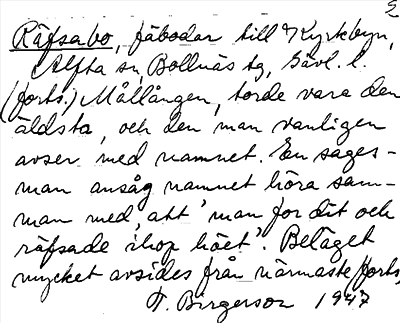 2
Räfsabo, fäbodar till Kyrkbyn,
Alfta sn, Bollnäs tg, Gävl. l.
(forts.) Mållången, torde vara den
äldsta, och den man vanligen
avser med namnet. En sages-
man ansåg namnet höra sam-
man med, att 'man for dit och
räfsade ihop höet'. Beläget
mycket avsides från närmaste (forts.)
F. Birgerson 1947